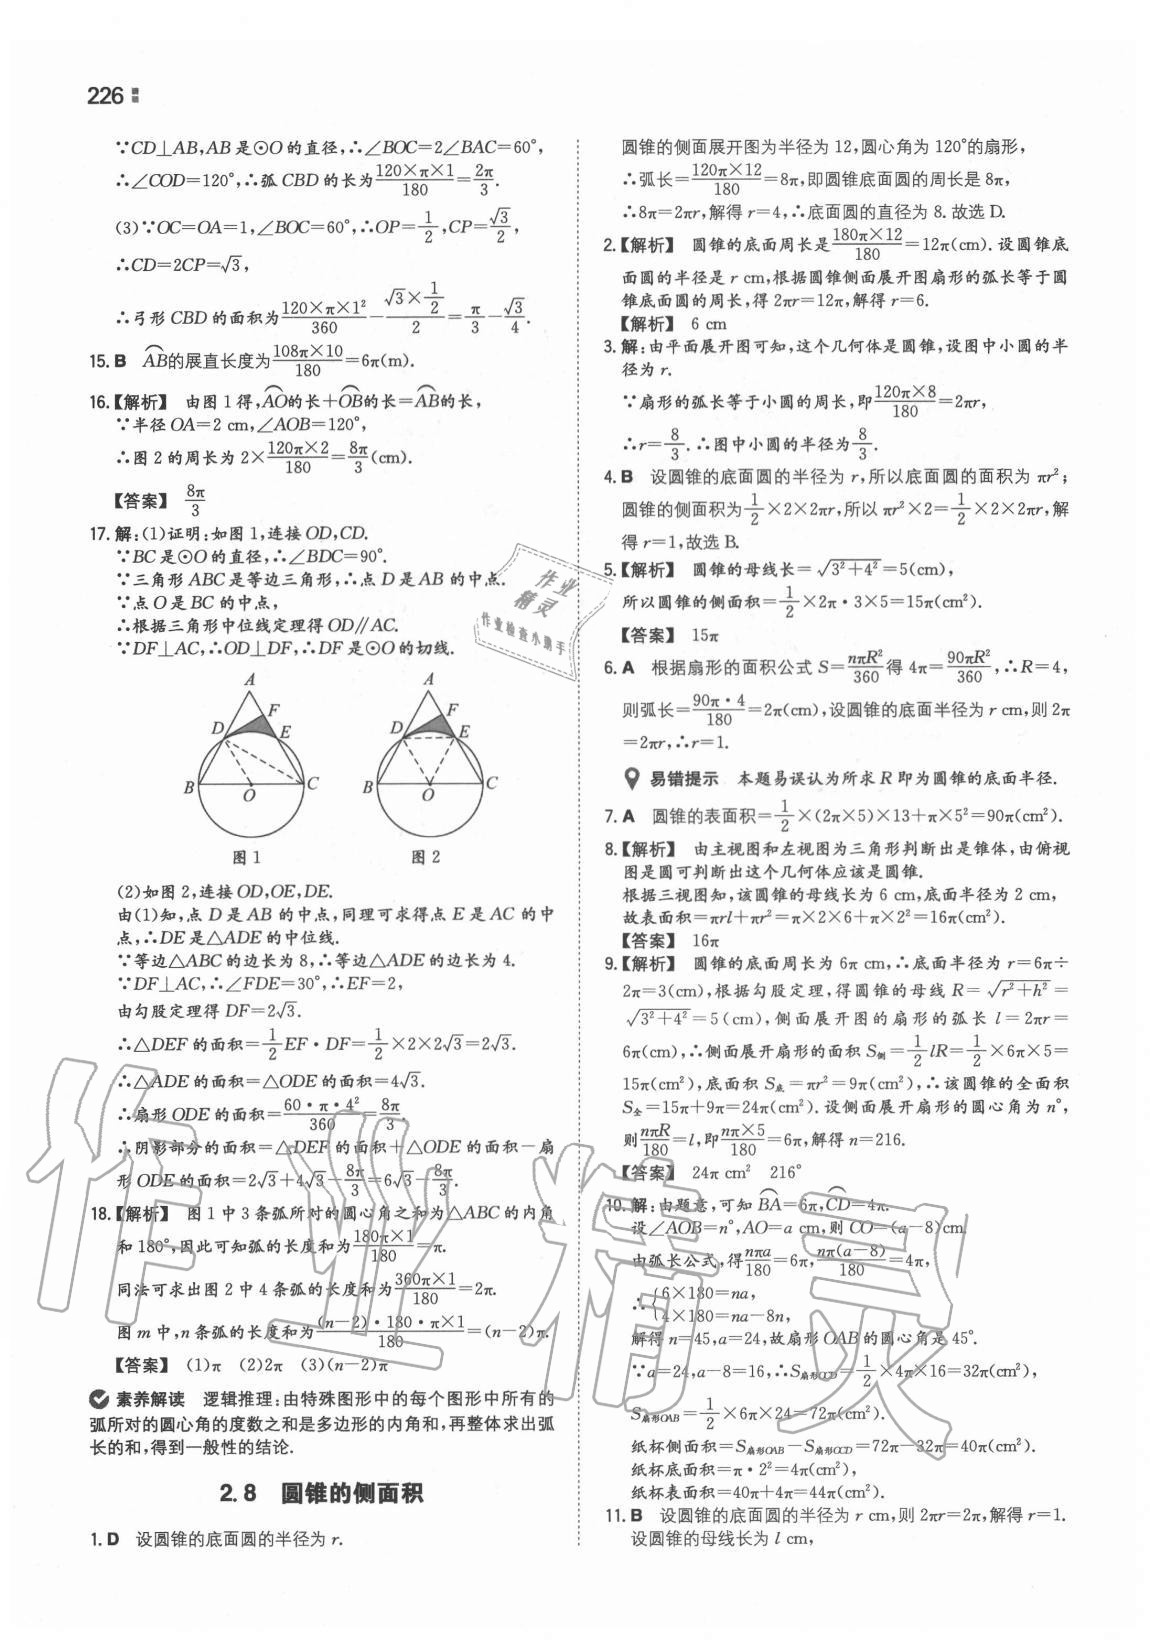 226
∵CD⊥AB,AB是⊙O的直径,∴∠BOC=2∠BAC=60°,
∴∠COD=120°,∴弧CBD的长为120×π×1/180=2π/3.
(3)∵OC=OA=1,∠BOC=60°,∴OP=1/2,CP=√3/2,
∴CD=2CP=√3,
∴弓形CBD的面积为120×π×1²/360-(√3×1/2)/2=π/3-√3/4.
15.B AB的展直长度为108π×10/180=6π(m).
16.【解析】 由图1得,AO的长+OB的长=AB的长,
∵半径OA=2 cm,∠AOB=120°,
∴图2的周长为2×120π×2/180=8π/3(cm).
【答案】 8π/3
17.解:(1)证明:如图1,连接OD,CD.
∵BC是⊙O的直径,∴∠BDC=90°.
∵三角形ABC是等边三角形,∴点D是AB的中点.
∵点O是BC的中点,
∴根据三角形中位线定理得OD∥AC.
∵DF⊥AC,∴OD⊥DF,∴DF是⊙O的切线.
A F D E B O C
A F D E B O C
图1 图2
(2)如图2,连接OD,OE,DE.
由(1)知,点D是AB的中点,同理可求得点E是AC的中
点,∴DE是△ADE的中位线.
∵等边△ABC的边长为8,∴等边△ADE的边长为4.
∵DF⊥AC,∴∠FDE=30°,∴EF=2,
由勾股定理得DF=2√3.
∴△DEF的面积=1/2EF·DF=1/2×2×2√3=2√3.
∴△ADE的面积=△ODE的面积=4√3.
∴扇形ODE的面积=60·π·4²/360=8π/3.
∴阴影部分的面积=△DEF的面积+△ODE的面积-扇
形ODE的面积=2√3+4√3-8π/3=6√3-8π/3.
18.【解析】 图1中3条弧所对的圆心角之和为△ABC的内角
和180°,因此可知弧的长度和为180π×1/180=π.
同法可求出图2中4条弧的长度和为360π×1/180=2π.
图m中,n条弧的长度和为(n-2)·180·π×1/180=(n-2)π.
【答案】 (1)π (2)2π (3)(n-2)π
素养解读 逻辑推理:由特殊图形中的每个图形中所有的
弧所对的圆心角的度数之和是多边形的内角和,再整体求出弧
长的和,得到一般性的结论.
2.8 圆锥的侧面积
1.D 设圆锥的底面圆的半径为r.
圆锥的侧面展开图为半径为12,圆心角为120°的扇形,
∴弧长=120π×12/180=8π,即圆锥底面圆的周长是8π,
∴8π=2πr,解得r=4,∴底面圆的直径为8.故选D.
2.【解析】 圆锥的底面周长是180π×12/180=12π(cm).设圆锥底
面圆的半径是r cm,根据圆锥侧面展开图扇形的弧长等于圆
锥底面圆的周长,得2πr=12π,解得r=6.
【解析】 6 cm
3.解:由平面展开图可知,这个几何体是圆锥,设图中小圆的半
径为r.
∵扇形的弧长等于小圆的周长,即120π×8/180=2πr,
∴r=8/3.∴图中小圆的半径为8/3.
4.B 设圆锥的底面圆的半径为r,所以底面圆的面积为πr²;
圆锥的侧面积为1/2×2×2πr,所以πr²×2=1/2×2×2πr,解
得r=1,故选B.
5.【解析】 圆锥的母线长=√3²+4²=5(cm),
所以圆锥的侧面积=1/2×2π·3×5=15π(cm²).
【答案】 15π
6.A 根据扇形的面积公式S=nπR²/360得4π=90πR²/360,∴R=4,
则弧长=90π·4/180=2π(cm),设圆锥的底面半径为r cm,则2π
=2πr,∴r=1.
易错提示 本题易误认为所求R即为圆锥的底面半径.
7.A 圆锥的表面积=1/2×(2π×5)×13+π×5²=90π(cm²).
8.【解析】 由主视图和左视图为三角形判断出是锥体,由俯视
图是圆可判断出这个几何体应该是圆锥.
根据三视图知,该圆锥的母线长为6 cm,底面半径为2 cm,
故表面积=πrl+πr²=π×2×6+π×2²=16π(cm²).
【答案】 16π
9.【解析】 圆锥的底面周长为6π cm,∴底面半径为r=6π÷
2π=3(cm),根据勾股定理,得圆锥的母线R=√r²+h²=
√3²+4²=5(cm),侧面展开图的扇形的弧长l=2πr=
6π(cm),∴侧面展开扇形的面积S侧=1/2lR=1/2×6π×5=
15π(cm²),底面积S底=πr²=9π(cm²),∴该圆锥的全面积
S全=15π+9π=24π(cm²).设侧面展开扇形的圆心角为n°,
则nπR/180=l,即nπ×5/180=6π,解得n=216.
【答案】 24π cm² 216°
10.解:由题意,可知BA=6π,CD=4π.
设∠AOB=n°,AO=a cm,则CO=(a-8)cm
由弧长公式,得nπa/180=6π,nπ(a-8)/180=4π,
∴{6×180=na,
4×180=na-8n,
解得n=45,a=24,故扇形OAB的圆心角是45°.
∵a=24,a-8=16,∴S扇形OCD=1/2×4π×16=32π(cm²).
S扇形OAB=1/2×6π×24=72π(cm²).
纸杯侧面积=S扇形OAB-S扇形OCD=72π-32π=40π(cm²).
纸杯底面积=π·2²=4π(cm²),
纸杯表面积=40π+4π=44π(cm²).
11.B 设圆锥的底面圆的半径为r cm,则2πr=2π,解得r=1.
设圆锥的母线长为l cm,
作业
精灵
作业检查小助手
作业精灵